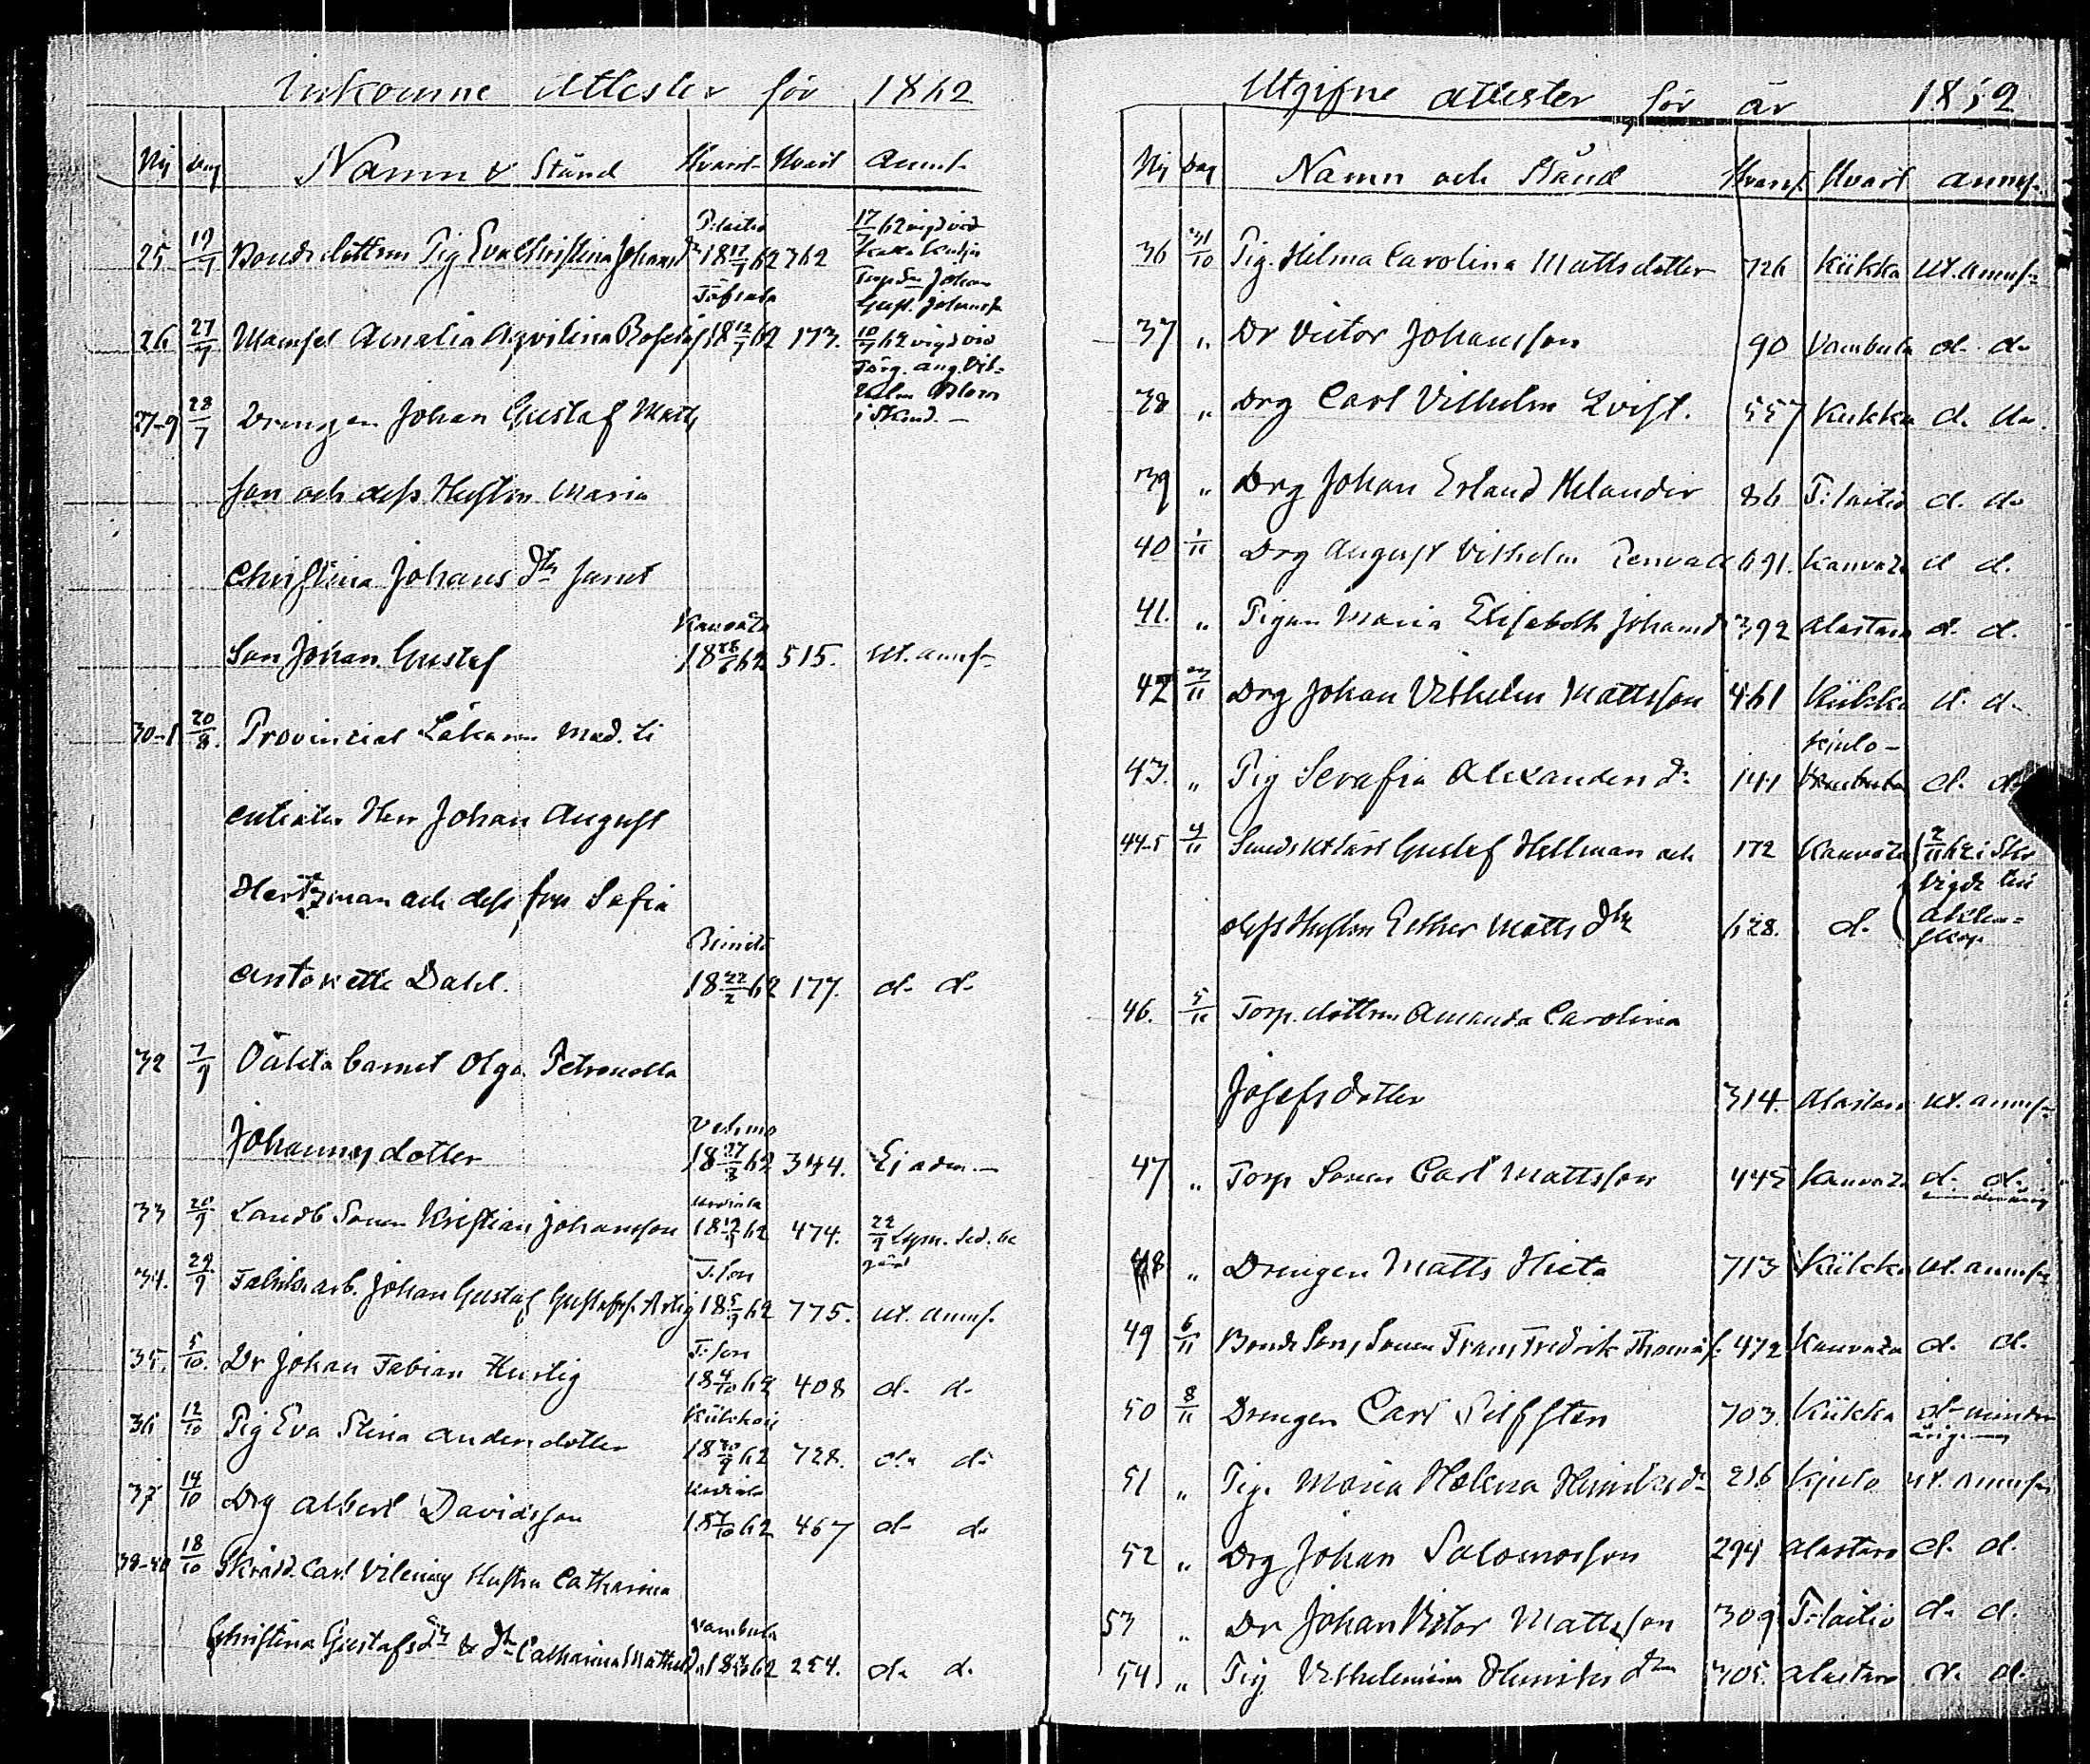 Inkomne Attester för 1862
No dag Namn & Stånd Hvarifr. Hvart Anmf.
P:laitio 17/7 62 vigd vid
25 19/7 Bondedottren Pig Eva Christina Johansdr 18 17/7 62 762
Torp.Sn Johan
Gust. Johansf.
26 27/7 Mamsel Amalia Aqvilina 18 12/7 62 173. 10/7 62 vigd vid
Färg. Aug. Vil-
helm
27-9 28/7 Drengen Johan Gustaf Matts
son och dess Hustru Maria
Christina Johans dtr samt
Kauvatsa
Son Johan Gustaf 18 28/6 62 515. ut. anmf.
30-1 20/8. Provincial Läkaren Med. Li
centiaten Herr Johan August
Hertzman och dess fru Sofia
Rimito
Antonette Dahl. 18 22/2 62 177. d. d.
32 7/9 Oäkta barnet Olga Petronella
Vehmo
Johannesdotter 18 27/3 62 344. Ej adm.
33 20/9 Landb Sonen Kristian Johansson 18 12/9 62 474. 22/9
34. 29/9 Fabriks arb. Johan Gustaf Gustafss. Artig 18 5/9 62 775. ut. anmf.
35. 5/10. Dr Johan Fabian Hurtig 18 4/10 62 408 d. d.
36 12/10 Pig Eva Stina Andersdotter 18 30/9 62 728. d. d.
37 14/10 Drg Albert Davidsson 18 7/10 62 467 d. d.
38-40 18/10 Skrädd. Carl Vilenius Hustru Catharina
Vambula
Christina Gustafs dtr & dtr Catharina Mathilda 62 254. d. d.
Utgifne attester för år 1862
No Dag Namn och Stånd Hvarif. Hvart anmf.
36 31/10 Pig. Hilma Carolina Mattsdotter 726 Kiikka ut. anmf.
37 " Dr Victor Johansson 90 Vambula d. d.
38 " Drg Carl Vilhelm Qvist. 557 Kiikka d. d.
39 " Drg Johan Erland Helander 86 P:laitio d. d.
40 1/11 Drg August Vilhelm Renvall 691. Kauvatsa d. d.
41. " Pigan Maria Elisabeth Johansd 392 Alastaro d. d.
42 /11 Drg Johan Vilhelm Mattsson 461 Kiikka d. d.
Kjulo
43. " Pig Serafia Alexanders dr 141 d. d.
44-5 4/11 Gustaf Hellman och 172 Kauvatsa 2/11 62 i Sko
Vigde till
dess Hustru Esther Matts dtr 628. d. äkten-
skap.
46. 5/11 Torp. dottren Amanda Carolina
Josefsdotter 314. Alastaro ut. anmf.
47 " Torp Sonen Carl Mattsson 445 Kauvatsa d. d.
48 " Drengen Matts Hieta 713 Kiikka ut. anmf.
49 6/11 Bonde Sons Sonen Frans Fredrik Thomas. 472 Kauvatsa d. d.
50 8/11 Drengen Carl Silfsten 703. Kiikka d. minder
årig
51 " Pig. Maria Helena Henriksdr 216 Kjulo ut. anmf.
52 " Drg Johan Salomosson 294 Alastaro d. d.
53 " Dr Johan Victor Mattsson 309 P:laitio d. d.
54 " Pig Vilhelmina Henriks dtr 305. Alastaro d. d.